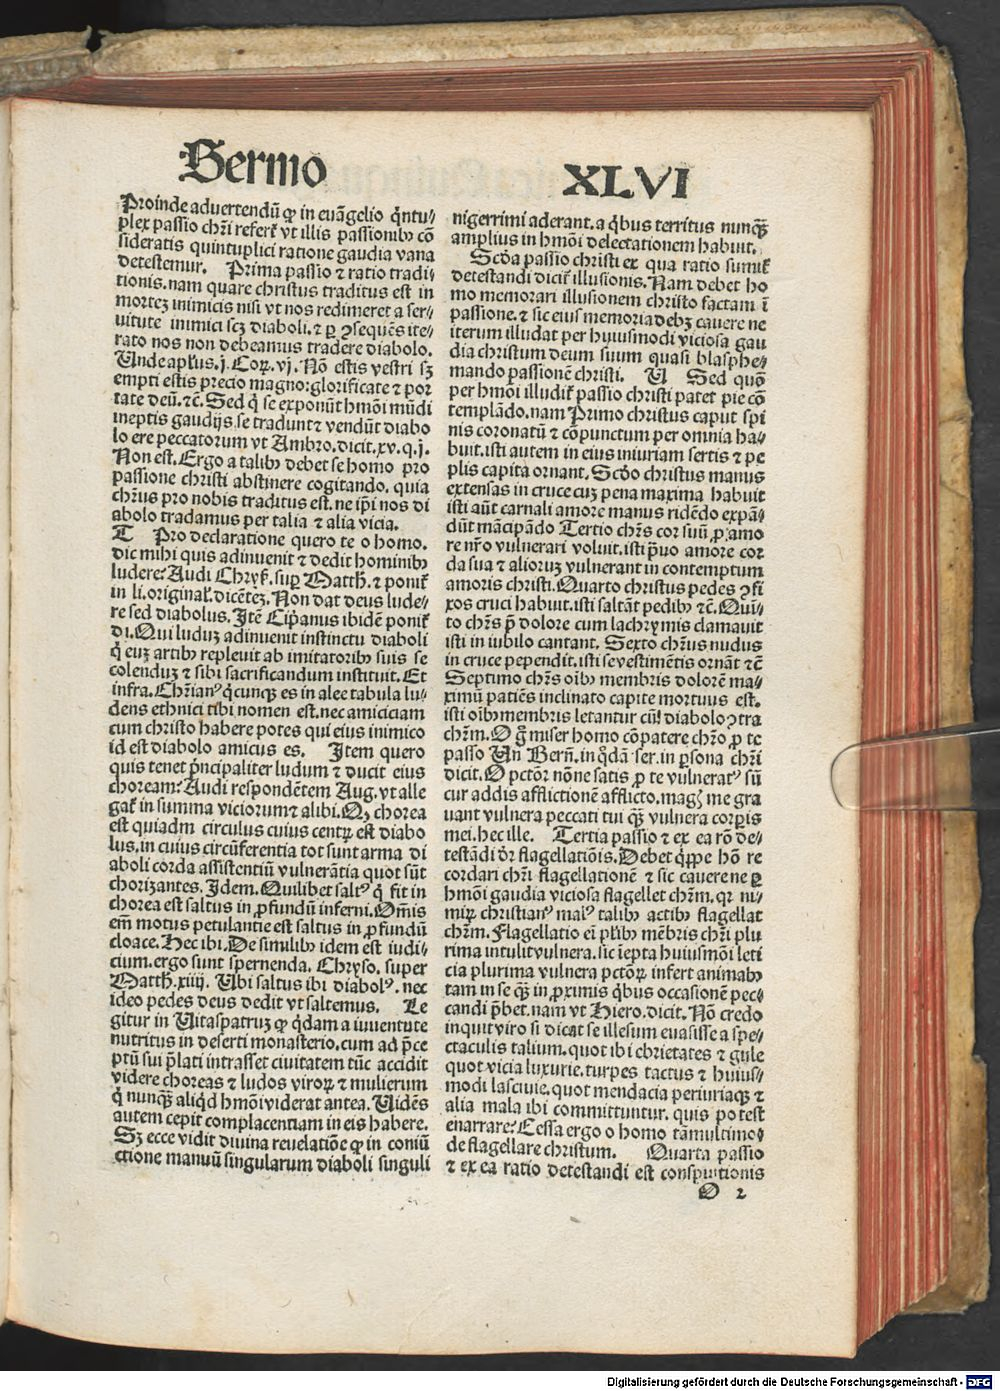 Sermo XLVI
Proinde aduertendū ꝙ in euāgelio q̈ntu-
plex passio chr̄i referť vt illis passionibꝰ cō
sideratis quintuplici ratione gaudia vana
detestemur. Prima passio ⁊ ratio tradi-
tionis. nam quare christus traditus est in
mortez inimicis nisi vt nos redimeret a ser-
uitute inimici scz diaboli. ⁊ ꝑ ꝯsequēs ite-
rato nos non debeamus tradere diabolo.
Unde apl'us. j. Coꝝ. vj. Nō estis vestri sꝫ
empti estis precio magno: glorificate ⁊ por
tate deū. ⁊c̄. Sed q̇ se exponūt hmōi mūdi
ineptis gaudijs se tradunt ⁊ vendūt diabo
lo ere peccatorum vt Ambro. dicit. xv. q. j.
Non est. Ergo a talibꝰ debet se homo pro
passione christi abstinere cogitando. quia
chr̄us pro nobis traditus est. ne ip̄i nos di
abolo tradamus per talia ⁊ alia vicia.
T Pro declaratione quero te o homo.
dic mihi quis adinuenit ⁊ dedit hominibꝰ
ludere? Audi Chryẜ. suꝑ Matth̄. ⁊ poniť
in li. original'. dicētez. Non dat deus lude-
re sed diabolus. Itē Cip̄anus ibidē poniť
di. Qui luduz adinuenit instinctu diaboli
q̇ euz artibꝰ repleuit ab imitatoribꝰ suis se
colenduz ⁊ sibi sacrificandum instituit. Et
infra. Chr̄ianꝰ q̇cunqꝫ es in alee tabula lu-
dens ethnici tibi nomen est. nec amiciciam
cum christo habere potes qui eius inimico
id est diabolo amicus es. Item quero
quis tenet pͥncipaliter ludum ⁊ ducit eius
choream? Audi respondētem Aug. vt alle
gať in summa viciorum ⁊ alibi. Qꝫ chorea
est quiadm circulus cuius centꝝ est diabo
lus. in cuius circūferentia tot sunt arma di
aboli corda assistentiū vulnerātia quot sūt
chorizantes. Idem. Quilibet saltꝰ q̇ fit in
chorea est saltus in ꝓfundū inferni. Om̄is
em̄ motus petulantie est saltus in ꝓfundū
cloace. Hec ibi. De similibꝰ idem est iudi-
cium. ergo sunt spernenda. Chryso. super
Matth̄. xiiij. Ubi saltus ibi diabolꝰ. nec
ideo pedes deus dedit vt saltemus. Le
gitur in Uitaspatruz ꝙ q̇dam a iuuentute
nutritus in deserti monasterio. cum ad p̄ce
ptū sui p̄lati intrasset ciuitatem tūc accidit
videre choreas ⁊ ludos viroꝝ ⁊ mulierum
q̇ nunqꝫ̄ aliq̇d hmōi viderat antea. Uidēs
autem cepit complacentiam in eis habere.
Sꝫ ecce vidit diuina reuelatiōe ꝙ in coniū
ctione manuū singularum diaboli singuli
nigerrimi aderant. a q̇bus territus nunqꝫ̄
amplius in hmōi delectationem habuit.
Scd̄a passio christi ex qua ratio sumiť
detestandi diciť illusionis. Nam debet ho
mo memorari illusionem christo factam ī
passione. ⁊ sic eius memoria debꝫ cauere ne
iterum illudat per huiusmodi viciosa gau
dia christum deum suum quasi blasphe-
mando passionē christi. U Sed quō
per hmōi illudiť passio christi patet pie cō
templādo. nam Primo christus caput spi
nis coronatū ⁊ cōpunctum per omnia ha-
buit. isti autem in eius iniuriam sertis ⁊ pe
plis capita ornant. Scd̄o christus manus
extensas in cruce cuz pena maxima habuit
isti aūt carnali amore manus ridēdo expā-
dūt mācipādo Tertio chr̄s cor suū ꝓ amo
re nr̄o vulnerari voluit. isti p̄uo amore cor
da sua ⁊ alioruz vulnerant in contemptum
amoris christi. Quarto christus pedes ꝯfi
xos cruci habuit. isti saltāt pedibꝰ ⁊c̄. Quī-
to chr̄s p̄ dolore cum lachrymis clamauit
isti in iubilo cantant. Sexto chr̄us nudus
in cruce pependit. isti se vestimētis ornāt ⁊c̄
Septimo chr̄s oībꝰ membris dolorē ma-
ximū patiēs inclinato capite mortuus est.
isti oībꝰ membris letantur cū diabolo ꝯtra
chr̄m. O g̊ miser homo cōpatere chr̄o ꝓ te
passo Uñ Berñ. in q̇dā ser. in ꝑsona chr̄i
dicit. O pctōr nōne satis ꝓ te vulneratꝰ sū
cur addis afflictionē afflicto. magꝭ me gra
uant vulnera peccati tui qꝫ̄ vulnera corꝑis
mei. hec ille. Tertia passio ⁊ ex ea rō de-
testādi dr̄ flagellatiōis. Debet q̈ꝑpe hō re
cordari chr̄i flagellationē ⁊ sic cauere ne ꝑ
hmōi gaudia viciosa flagellet chr̄m. qꝛ ni-
miꝝ christianꝰ malꝰ talibꝰ actibꝰ flagellat
chr̄m. Flagellatio em̄ pl'ibꝰ mēbris chr̄i plu
rima intulit vulnera. sic iēpta huiusmōi leti
cia plurima vulnera pctōꝝ infert animabꝰ
tam in se qꝫ̄ in ꝓximis q̇bus occasionē pec-
candi p̄bet. nam vt Hiero. dicit. Nō credo
inquit viro si dicat se illesum euasisse a spe-
ctaculis talium. quot ibi ebrietates ⁊ gule
quot vicia luxurie. turpes tactus ⁊ huius-
modi lasciuie. quot mendacia periuriaqꝫ ⁊
alia mala ibi committuntur. quis potest
enarrare? Cessa ergo o homo tāmultimo-
de flagellare christum. Quarta passio
⁊ ex ea ratio detestandi est conspuitionis
O 2
Digitalisierung gefördert durch die Deutsche Forschungsgemeinschaft - DFG